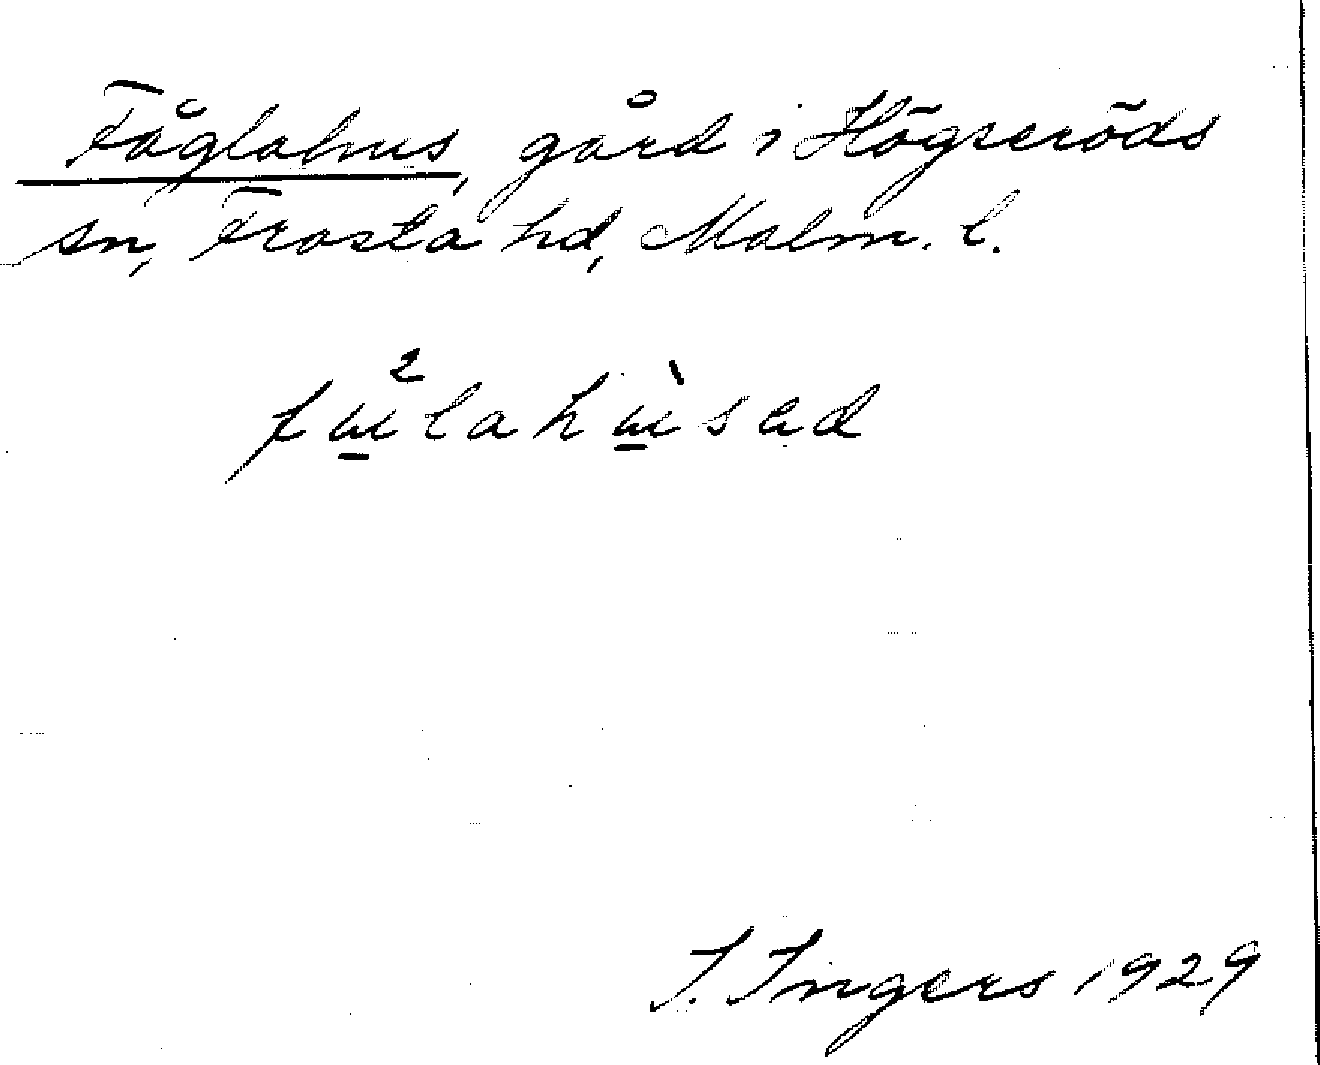 Fåglahus, gård i Högseröds
sn, Frosta hd, Malm. l.
I. Ingers 1929